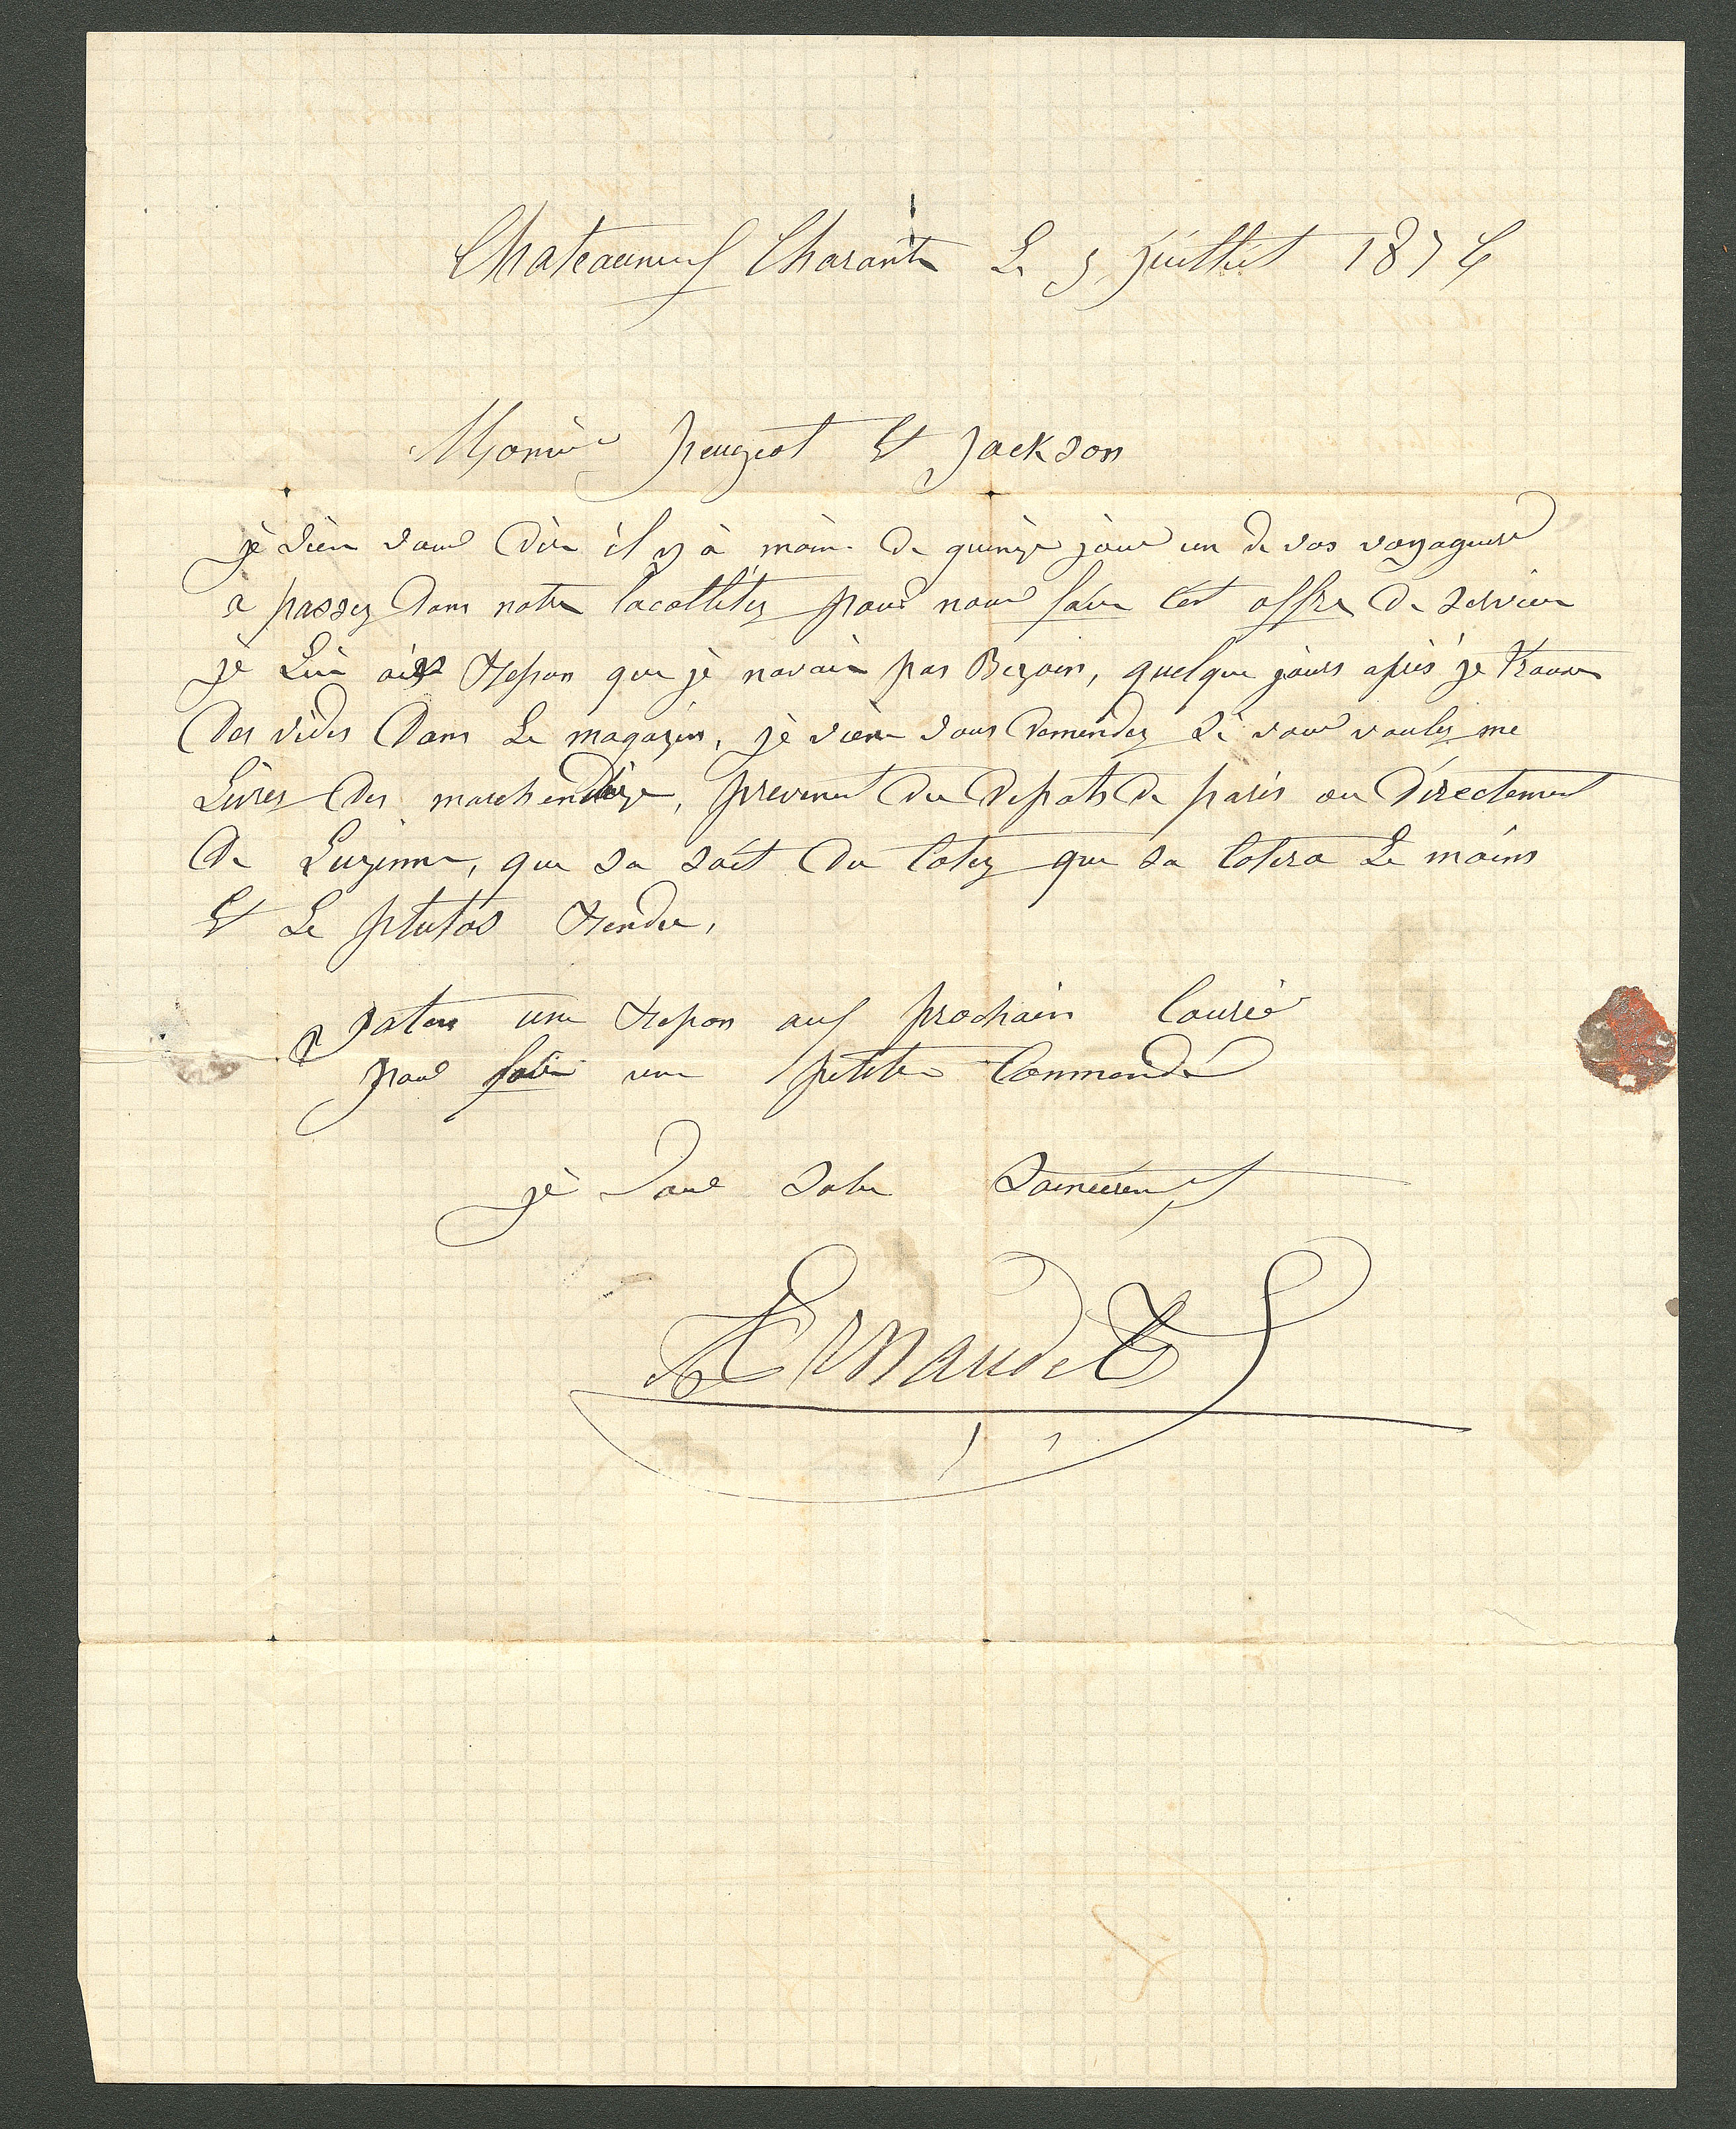 Chateauneuf Charante Le 5 Juillet 1874
Peugeot Et Jackson
jè vien vous dire il y à moin de quinze jour un de vos voyageurs
a passez dans notre locallitez pour nous faire cest offre de service
je Lui ais Repon que jè navais pas Bezoin, quelque jours après je trouve
des vides dans Le magazin, jè viens vous demendez si vous voulez me
Livrer des marchendize, prevenent du depots de paris ou directement
de Luzinne, que sa soit du Cotez que sa Cotera Le moins
Et Le plutos Rendu,
Jatens une Repon auf prochain Courié
pour faire une petite Commande
jè vous salue
Arnaudet